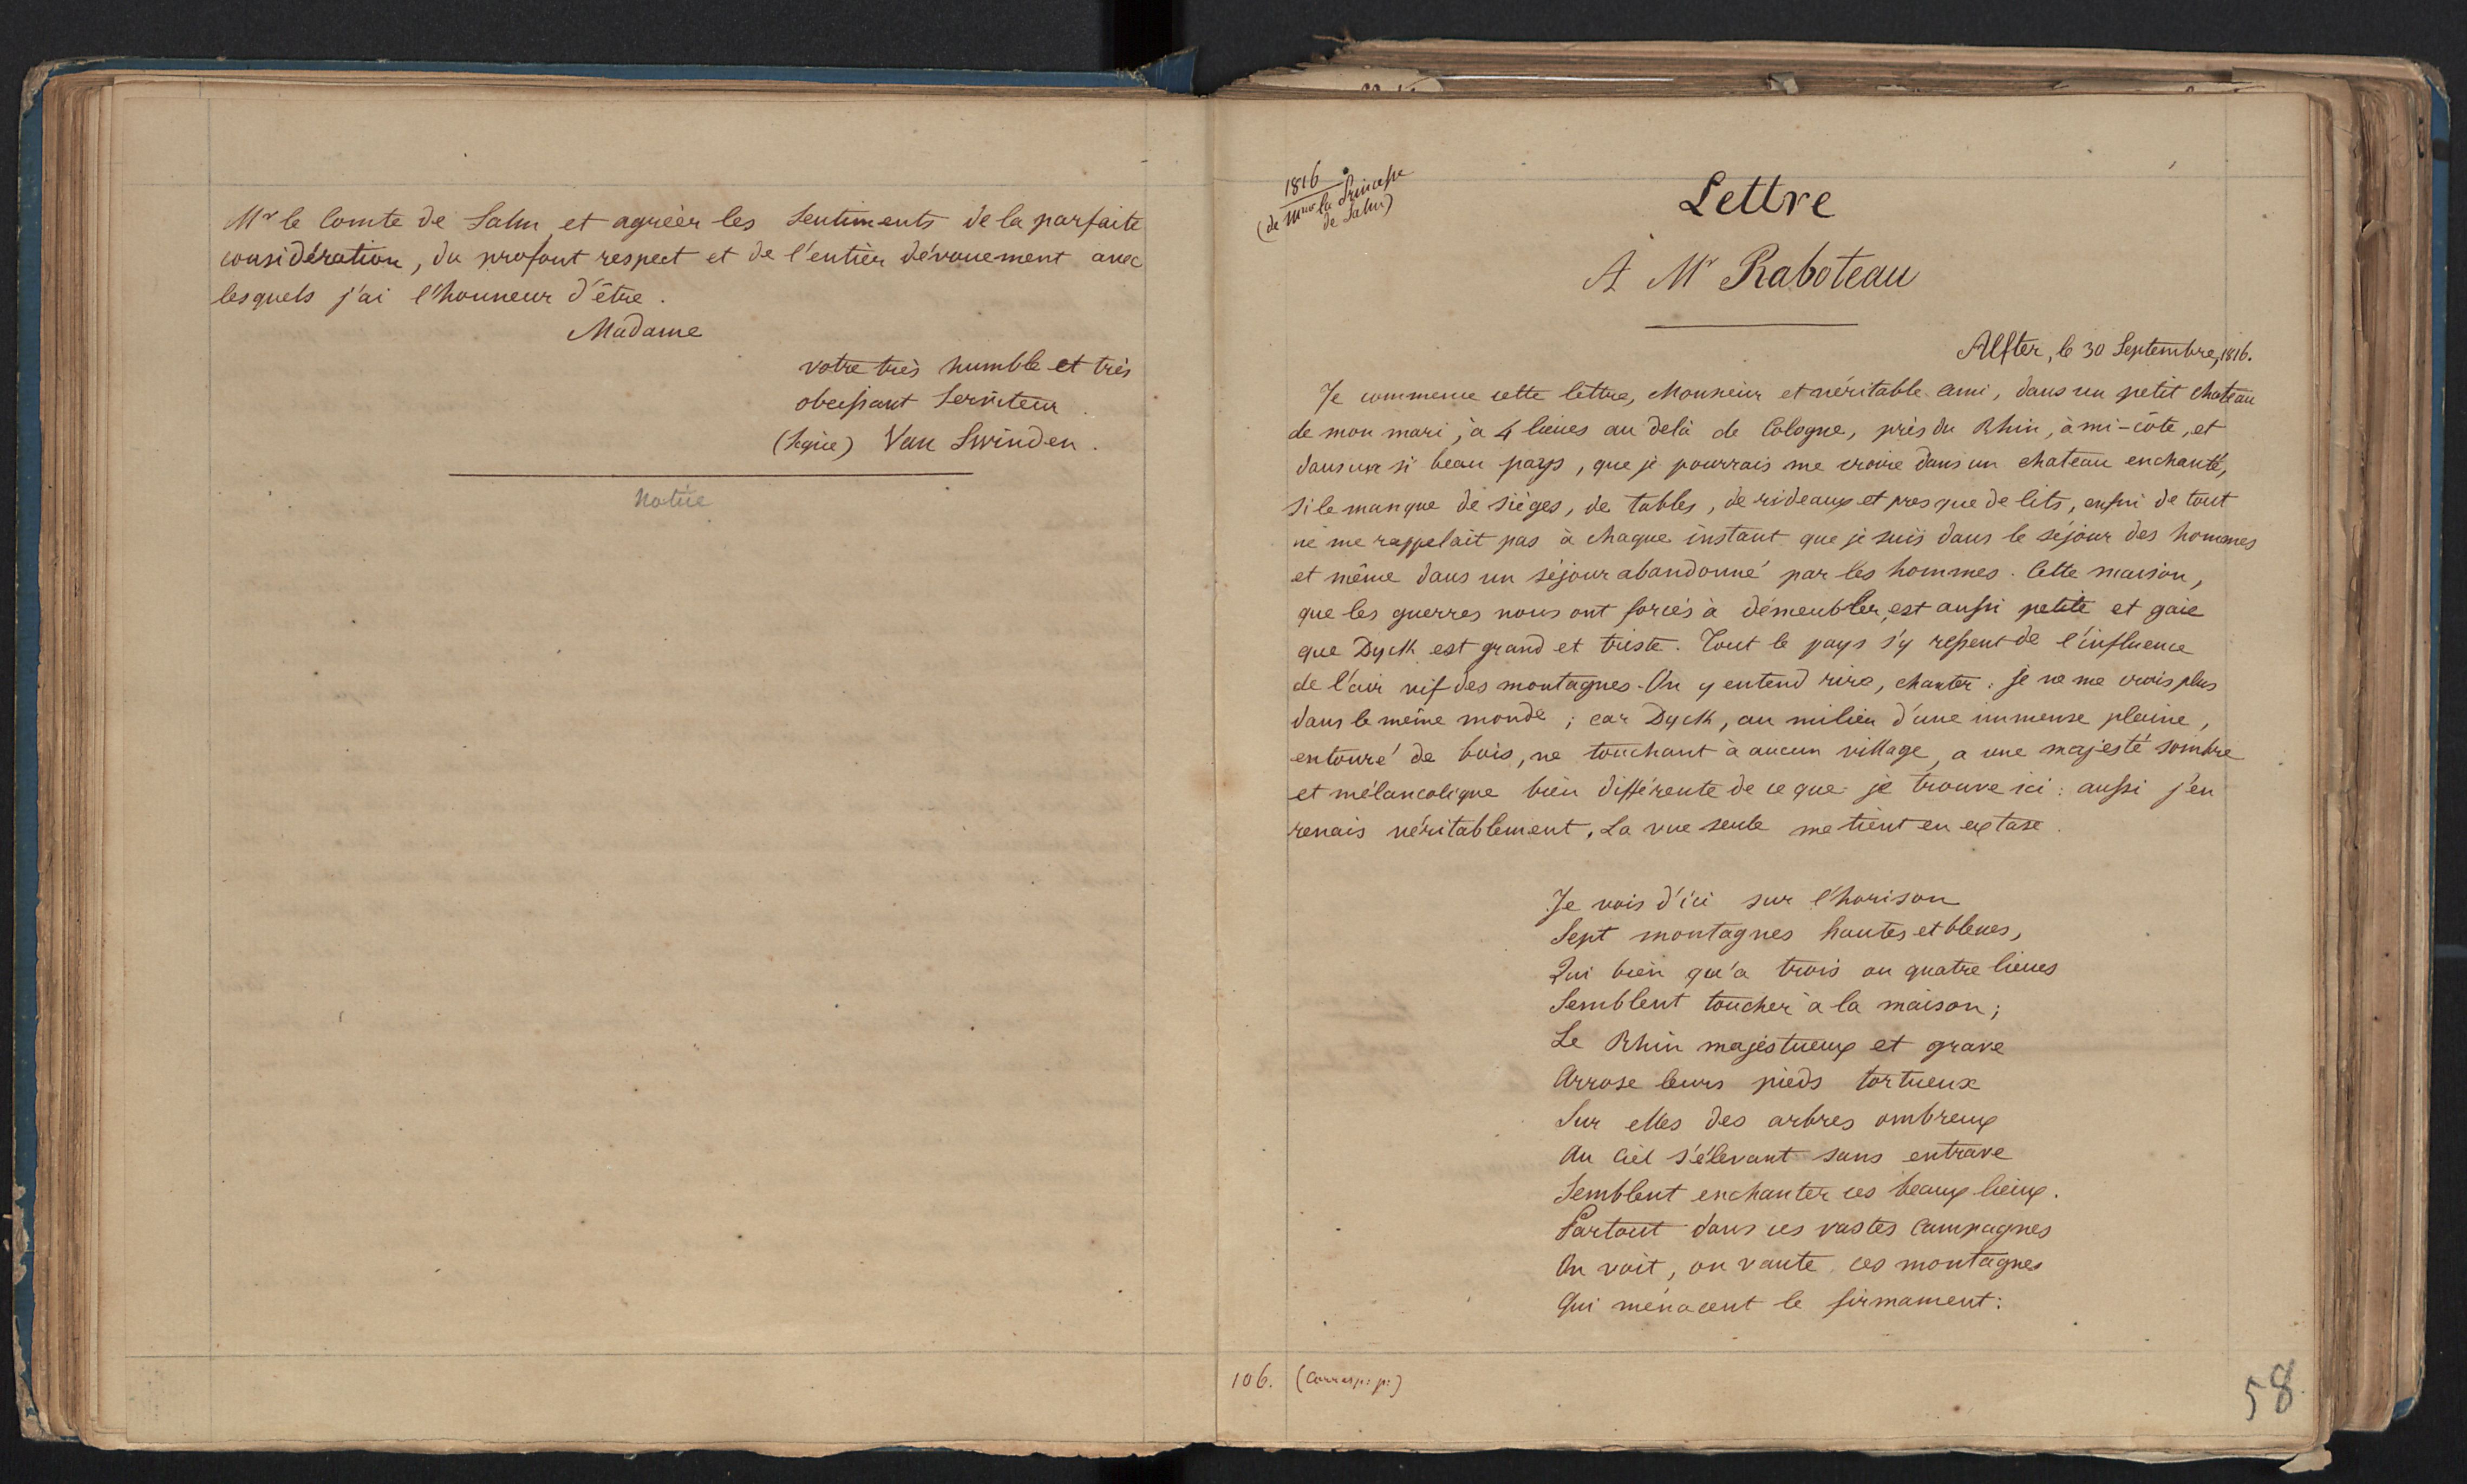 Mr le Comte de Salm, et agréèr les Sentiments de la parfaite
considération, du profont respect et de l'entièr dévouement avec
lesquels j'ai l'honneur d'être.
Madame
votre très humble et très
obeissant Serviteur.
(Signé) Van Swinden.
Notice
1816
(de Mme la Princesse
de Salm)
Lettre
À Mr Raboteau
Alfter, le 30 Septembre, 1816.
Je commence cette lettre, Monsieur et véritable ami, dans un petit chateau
de mon mari, à 4 lieues au delà de Cologne, près du Rhin, à mi-côte, et
dans un si beau pays, que je pourrais me croire dans un chateau enchanté,
si le manque de sièges, de tables, de rideaux et presque de lits, enfin de tout
ne me rappelait pas à chaque instant que je suis dans le séjour des hommes
et même dans un séjour abandonné par les hommes. Cette maison,
que les guerres nous ont forcés à démeubler, est aussi petite et gaie
que Dyck est grand et triste. Tout le pays s'y ressent de l'influence
de l'air vif des montagnes. On y entend rire, chanter: je ne me crois plus
dans le même monde; car Dyck, au milieu d'une immense plaine,
entouré de bois, ne touchant à aucun village, a une majesté sombre
et mélancolique bien différente de ce que je trouve ici: aussi j'en
renais véritablement. La vue seule me tient en extase.
Je vois d'ici sur l'horison
Sept montagnes hautes et bleues,
Qui bien qu'a trois ou quatre lieues
Semblent toucher à la maison;
Le Rhin majestueux et grave
Arrose leurs pieds tortueux
Sur elles des arbres ombreux
Au Ciel s'élevant sans entrave
Semblent enchanter ces beaux lieux.
Partout dans ces vastes campagnes
On voit, on vante ces montagnes
Qui ménacent le firmament:
106. (Corresp: p:)
58